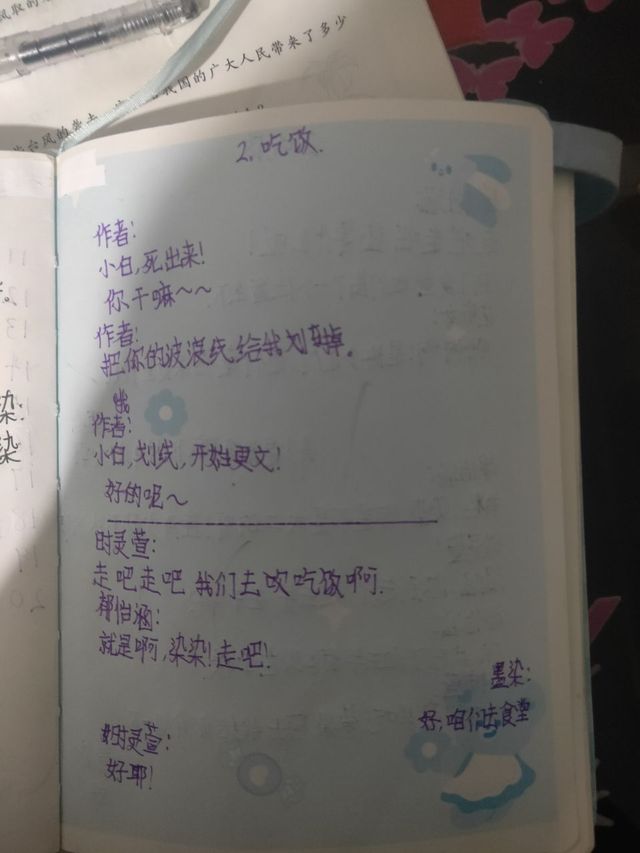 风取的
国的广大人民带来了多少
台风的袭击
2.吃饭.
作者:
小白,死出来!
你干嘛~~
作者:
把你的波浪线给我划掉。
哦
作者:
小白,划线,开始更文!
好的呢~
时灵萱:
走吧走吧 我们去吃饭啊.
郝怡涵:
就是啊,染染!走吧!
墨染:
好,咱们去食堂
时灵萱:
好耶!
染:
染